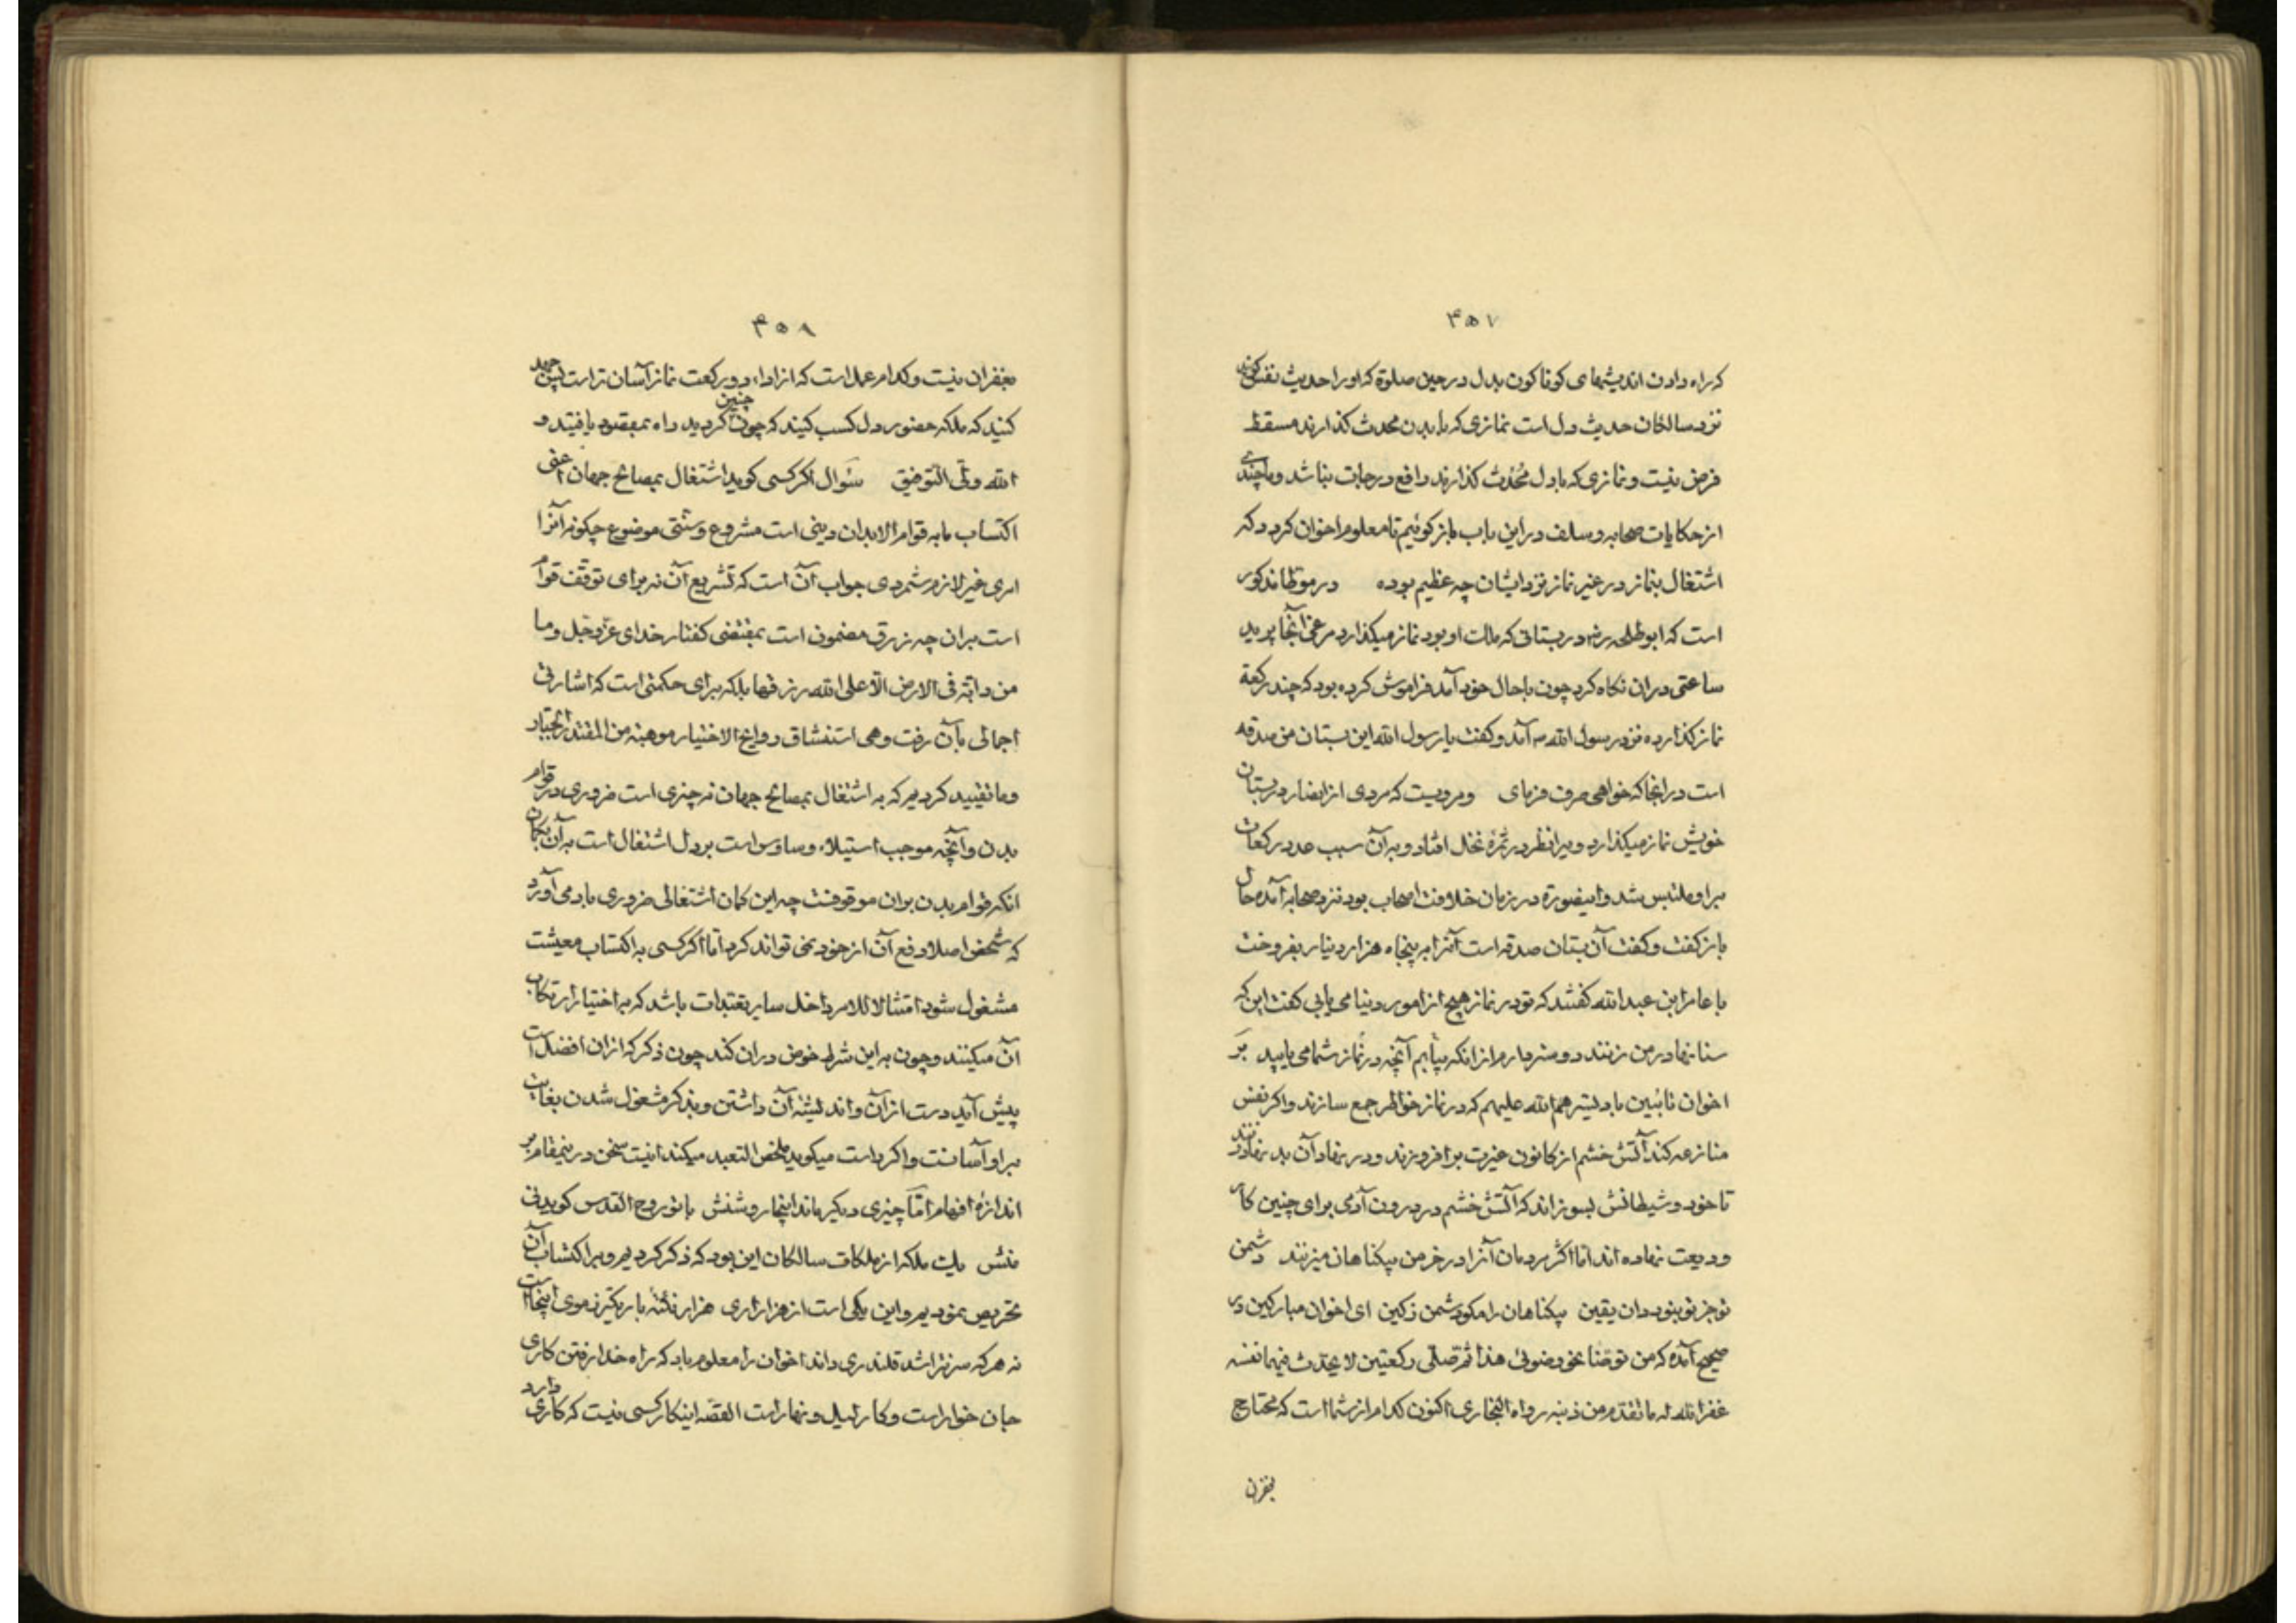 ۴۵۷
که راه دادن اندیشهای کوناکون بدل در حین صلوة که اورا حدیث نفس کویند
نزد سالکان حدیث دل است نمازی که با بدن محدث کذارند مسقط
فرض نیست و نمازی که با دل مُحْدِث کذارند رافع درجات نباشد و ما چندی
از حکایات صحابه و سلف در این باب باز کوئیم تا معلوم اخوان کردد که
اشتغال بنماز در غیر نماز نزد ایشان چه عظیم بوده در موطا مذکور
است که ابو طلحه رض در بستانی که ملک او بود نماز میکذارد مرغی آنجا پرید
ساعتی دران نکاه کرد چون باحال خود آمد فراموش کرده بود که چند رکعة
نماز کذارده نزد رسول الله ص آمد و کفت یا رسول الله این بستان من صدقه
است در انجا که خواهی صرف فرمای ومرویست که مردی از انصار در بستان
خویش نماز میکذارد ویرا نظر در ثمرهٔ نخل افتاد و به آن سبب عدد رکعات
براو ملتبس شد و اینصورة در زمان خلافت اصحاب بود نزد صحابه آمده حال
باز کفت و کفت آن بستان صدقه است آنرا به پنجاه هزار دینار بفروخت
با عامر ابن عبد الله کفتند که تو در نماز هیچ از امور دنیا می یابی کفت این که
سنانها در من زنند دوستر دارم از انکه بیابم آنچه در نماز شما می یابید بَر
اخوان تائبین باد یسرهم الله علیهم که در نماز خواطر جمع سازند و اکر نفس
منازعه کند آتش خشم از کانون غیرت بر افروزند و در نهاد آن بد نهاد زنند
تا خود و شیطانش بسوزاند که آتش خشم در درون آدمی برای چنین کار
ودیعت نهاده اند اما اکثر مردمان آنرا در خرمن بیکناهان میزنند دشمن
تو جز تو نبود دان یقین بیکناهان را مکو دشمن ز کین ای اخوان مبارکین در
صحیح آمده که من توضّا نحو وضوئی هذا ثم صلّی رکعتین لا یحدّث فیهما نفسه
غفر الله له ما تقدم من ذنبه رواه البخاری اکنون کدام از شما است که محتاج
بغفران
۴۵۸
بغفران نیست و کدام عمل است که از اداء دو رکعت نماز آسان تر است پس جهد
کنید که ملکه حضور دل کسب کنید که چون چنین کردید راه بمقصود یافتید و
الله ولّی التوفیق سَوال اکر کسی کوید اشتغال بمصالح جهان اعنی
اکتساب ما به قوام الابدان دینی است مشروع و سنّتی موضوع چکونه آنرا
امری غیر لازم شمردی جواب آن است که تشریع آن نه برای توقّف قوام
است بران چه رزق مضمون است بمقتضی کفتار خدای عزّ و جّل و ما
من دابّة فی الارض الّا علی الله رزقها بلکه برای حکمتی است که اشارتی
اجمالی بآن رفت وهی استنشاق روایح الاختیار موهبة من المقتدر الجبّار
وما تقیید کردیم که به اشتغال بمصالح جهان نه چیزی است ضروری در قوام
بدن و آنچه موجب استیلاء وساوس است بر دل اشتغال است به آن بکمان
انکه قوام بدن بران موقوفست چه این کمان اشتغالی ضروری بادمی آورد
که شخص اصلا دفع آن از خود نمی تواند کرد امّا اکر کسی به اکتساب معیشت
مشغول شود امتثالا للامر داخل سایر تعبّدات باشد که به اختیار ارتکاب
آن میکنند و چون به این شرط خوض دران کند چون ذکر که ازان افضل است
پیش آید دست از آن و اندیشهٔ آن داشتن و بذکر مشغول شدن بغایت
براو آسانست و اکر راست میکوید محض التعبد میکند اینست سخن در ینمقام بر
اندازهٔ افهام امّا چیزی دیکر ماند اینجا روشنش با تو روح القدس کوید نی
منش یک ملکه از ملکات سالکان این بود که ذکر کردیم و بر اکتساب آن
تحریص نمودیم و این یکی است از هزاراری هزار نکتهٔ باریکتر ز موی اینجاست
نه هر که سر بتراشد قلندری داند اخوان را معلوم باد که راه خدا رفتن کاری
جان خوار است و کار لیل و نهار است القصّه اینکار کسی نیست که کاری دارد